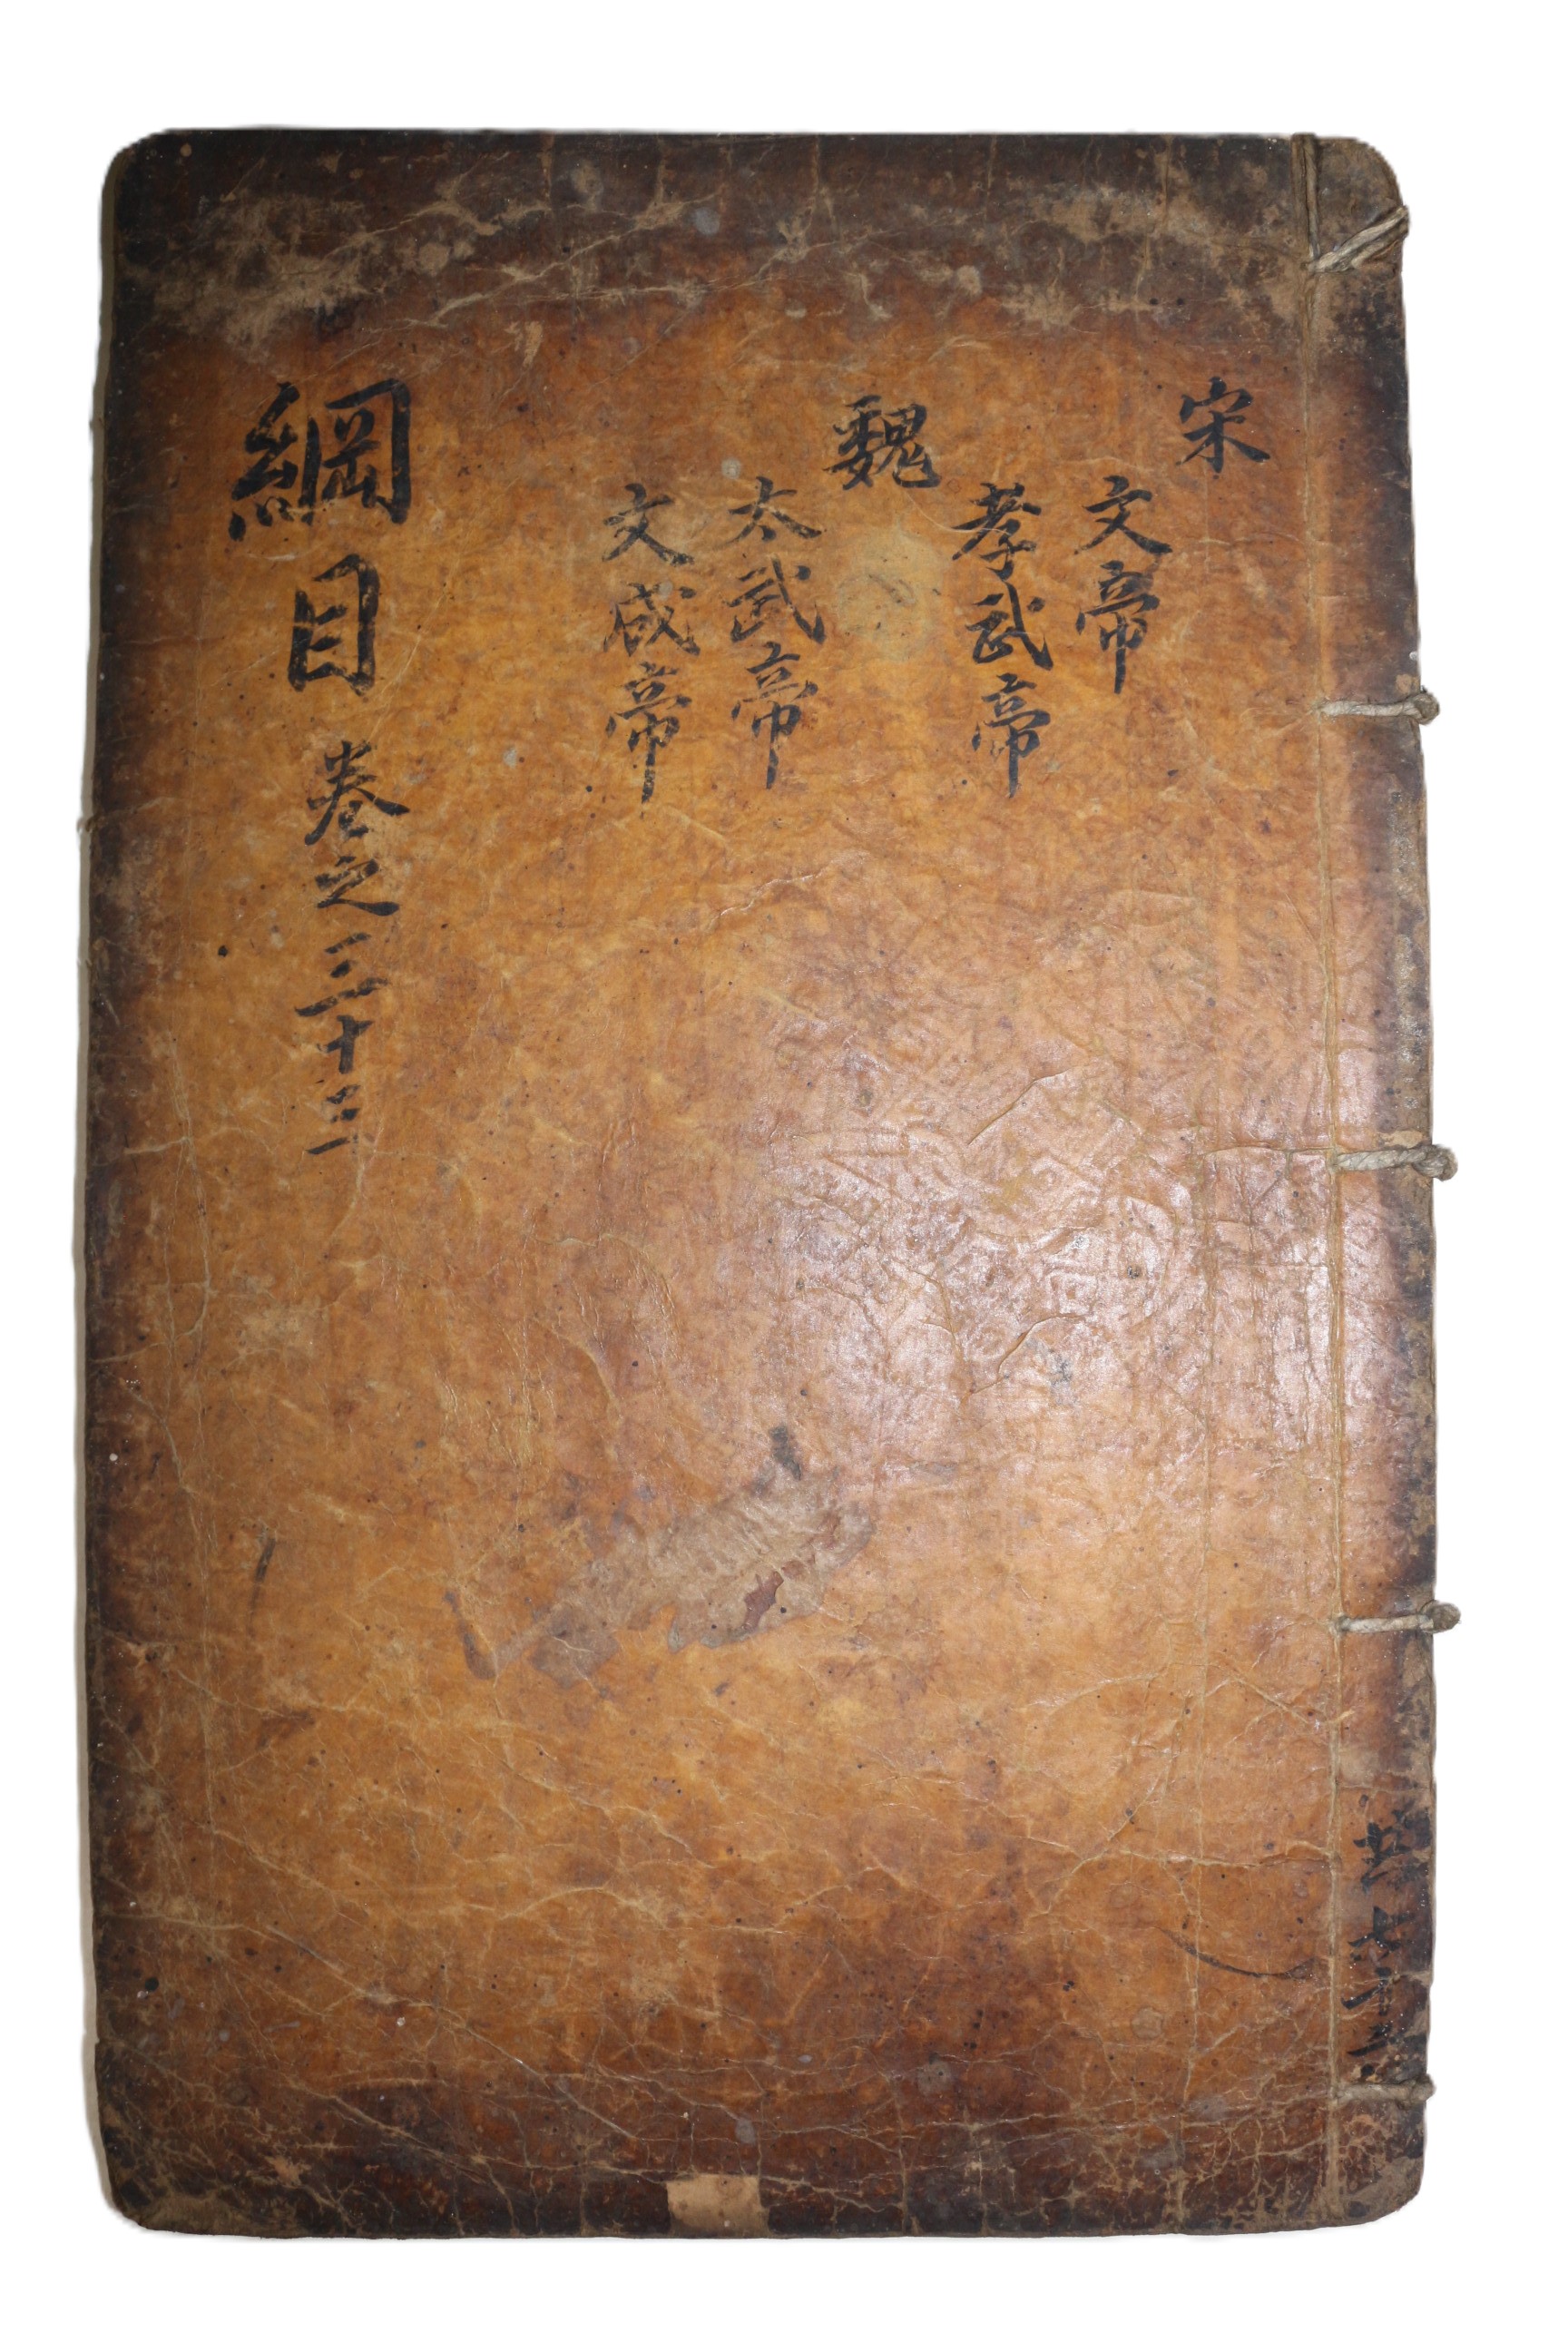 共七十
宋
文帝
孝武帝
魏
太武帝
文成帝
綱目 卷之三十三